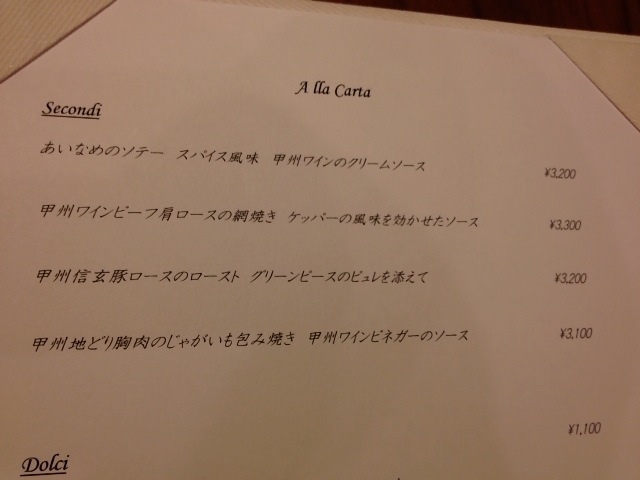 A lla Carta
Secondi
あいなめのソテー スパイス風味 甲州ワインのクリームソース ¥3,200
甲州ワインビーフ肩ロースの網焼き ケッパーの風味を効かせたソース ¥3,300
甲州信玄豚ロースのロースト グリーンピースのピュレを添えて ¥3,200
甲州地どり胸肉のじゃがいも包み焼き 甲州ワインビネガーのソース ¥3,100
¥1,100
Dolci